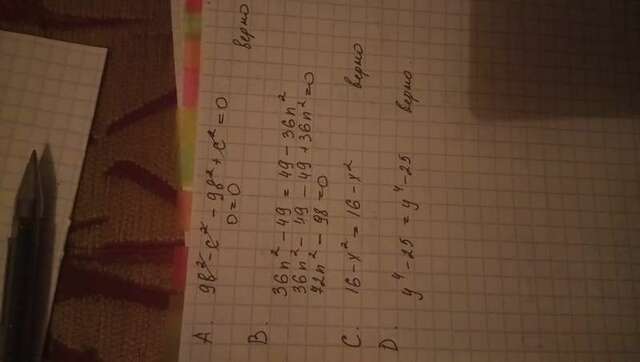 A. 9в² - c² - 9в² + c² = 0
0 = 0
верно
B.
36n² - 49 = 49 - 36n²
36n² - 49 - 49 + 36n² = 0
72n² - 98 = 0
C. 16 - x² = 16 - x² верно
D.
y⁴ - 25 = y⁴ - 25 верно